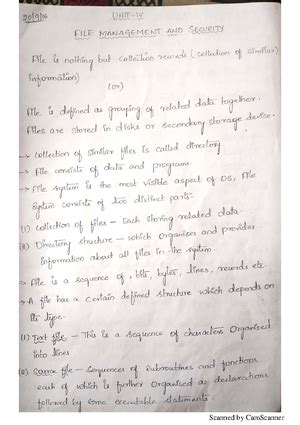 20/9/18
UNIT-IV
FILE MANAGEMENT AND SECURITY
File is nothing but collection records (collection of similar
Information)
(or)
File is defined as grouping of related data together.
Files are stored in disks or secondary storage device.
→ collection of similar files is called directory
→ File consists of data and programs
→ File system is the most visible aspect of OS, File
System consists of two distinct parts.
(i) collection of files - Each storing related data.
(ii) Directory structure - which organises and provides
Information about all files in the system.
→ File is a sequence of, bits, bytes, lines, records etc
→ A file has a certain defined structure which depends on
its type.
(i) Text file - This is a sequence of characters organised
into lines
(ii) Source file - sequences of subroutines and functions
each of which is further organised as declarations
followed by some executable statements.
Scanned by CamScanner